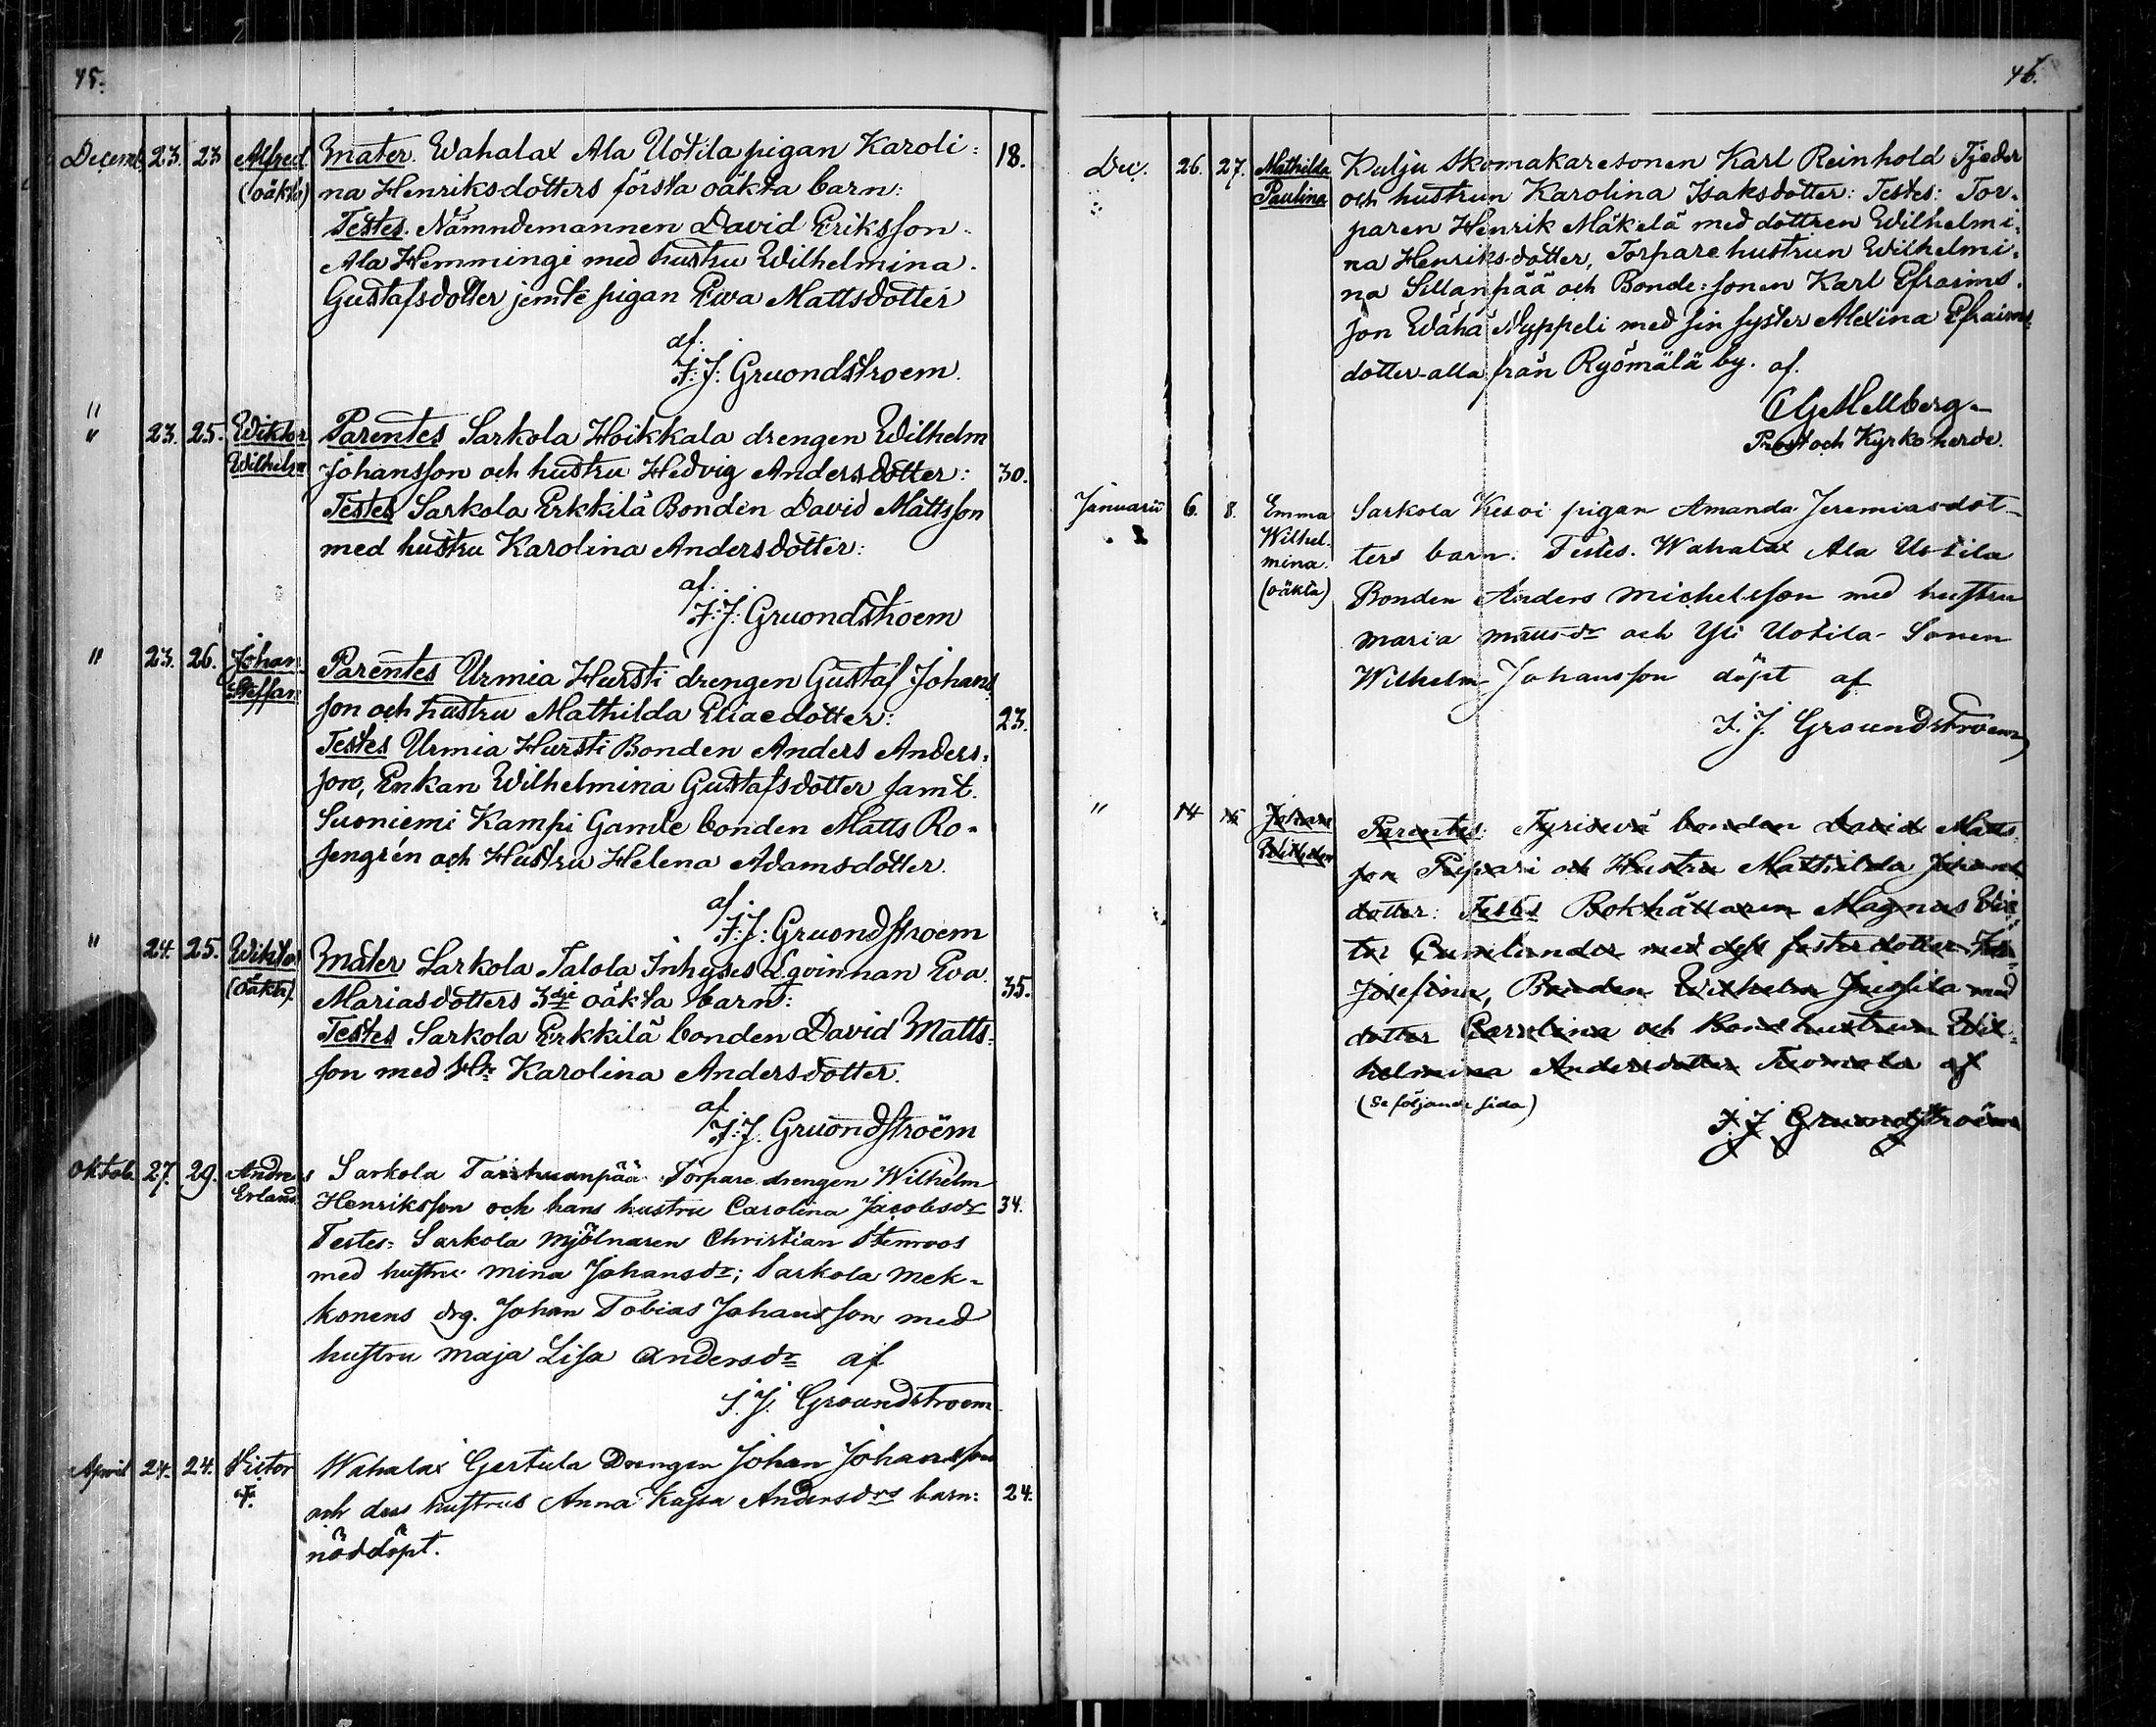 45.
Decemb. 23. 23 Alfred Mater. Wahalax Ala Uotila pigan Karoli: 18.
(oäkta) na Henriksdotters första oäkta barn:
Testes. Nämndemannen David Eriksson
Ala Hemmingi med hustru Wilhelmina
Gustafsdotter jemte pigan Ewa Mattsdotter
af:
F: J: Gruondstroem.
"
" 23. 25. Wiktor Parentes Sarkola Hoikkala drengen Wilhelm
Wilhelm Johansson och hustru Hedvig Andersdotter: 30.
Testes Sarkola Erkkilä Bonden David Mattsson
med hustru Karolina Andersdotter:
af:
F: J: Gruondstroem
" 23. 26. Johan Parentes Urmia Hursti drengen Gustaf Johans
Steffan son och hustru Mathilda Eliaedotter: 23.
Testes Urmia Hursti Bonden Anders Anders:
son, Enkan Wilhelmina Gustafsdotter samt.
Suoniemi Kampi Gamle bonden Matts Ro-
sengrén och Hustru Helena Adamsdotter.
af.
F: J: Gruondstroem
" 24. 25. Wiktor Mater Sarkola Talola Inhyses Qvinnan Eva
(oäkta) Mariasdotters 3dje oäkta barn: 35.
Testes Sarkola Erkkilä bonden David Matts:
son med Hu Karolina Andersdotter.
af
F: J: Gruondstroëm
Oktob. 27. 29. Andreas Sarkola Torpare drengen Wilhelm
Erland Henriksson och hans hustru Carolina Jacobsdr 34.
Testes: Sarkola Mjölnaren Christian Stenroos
med hustru Mina Johansdr; Sarkola Mek-
konens drg. Johan Tobias Johansson med
hustru Maja Lisa Andersdr af
F. J. Groundstroem
April 24. 24. Victor Wahalax Gertula Drengen Johan Johansson
och des hustrus Anna Kajsa Andersdrs barn: 24.
nöddöpt.
46.
Dec. 26. 27. Mathilda Kulju Skomakaresonen Karl Reinhold Tjeder
Paulina och hustrun Karolina Isaksdotter: Testes: Tor-
paren Henrik Mäkelä med dottren Wilhelmi:
na Henriksdotter, Torparehustrun Wilhelmi:
na Sillanpää och Bonde:sonen Karl Efraims.
son Wähä Nyppeli med sin syster Alexina Efraims:
dotter-alla från Ryömälä by. af.
C G Hellberg
Prost och Kyrkoherde.
Januarii 6. 8. Emma Sarkola Kesvi pigan Amanda Jeremiasdot-
Wilhel- ters barn. Testes. Wahalax Ala Uotila
mina. Bonden Anders Michelsson med hustru
(oäkta) Maria och Yli Uotila Sonen
Wilhelm Johansson döpt af
F. J. Groundstroem
" 14 15 Johan Parentes: Tyrisevä bonden David Matts
Wilhelm son Pispari och Hustru Mathilda Johans
dotter: Testes Bokhållaren Magnus Vic
tor Cumlander med dess fosterdotter
Josefina, Bonden Wilhelm Juslila med
dotter Carolina och Bondhustrun Wil-
helmina Andersdotter Tuomola af
(Se följande sida)
F. J Gruondstroëm